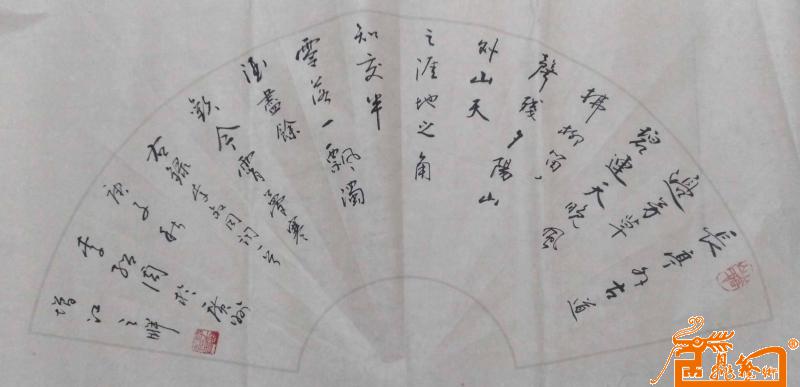 長亭外古道
邊芳草
碧連天晚風
拂柳笛
聲殘夕陽山
外山天
之涯地之角
知交半
零落一瓢濁
酒盡餘
歡今宵夢寒
右録李叔同詞一首
庚子秋
李 於廣州
增江之畔